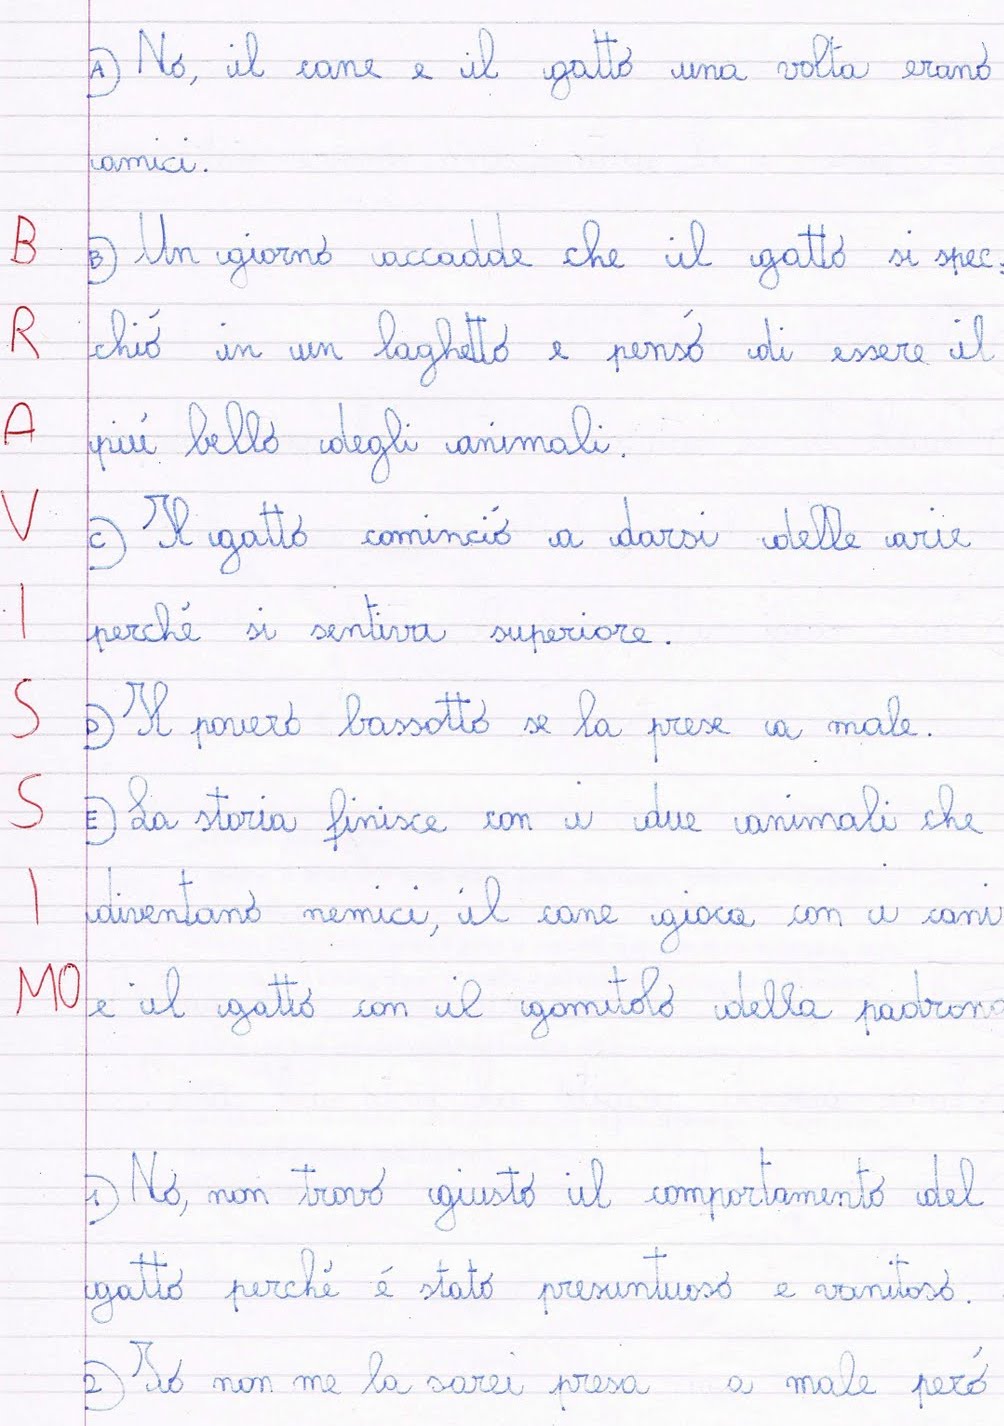 A) No, il cane e il gatto una volta erano
amici.
B B) Un giorno accadde che il gatto si spec:
R chió in un laghetto e pensó di essere il
A piú bello degli animali.
V C) Il gatto cominció a darsi delle arie
I perché si sentiva superiore.
S D) Il povero bassotto se la prese a male.
S E) La storia finisce con i due animali che
I diventano nemici, il cane gioca con i cani
MO e il gatto con il gomitolo della padrona
1) No, non trovo giusto il comportamento del
gatto perché é stato presuntuoso e vanitoso.
2) Io non me la sarei presa a male peró